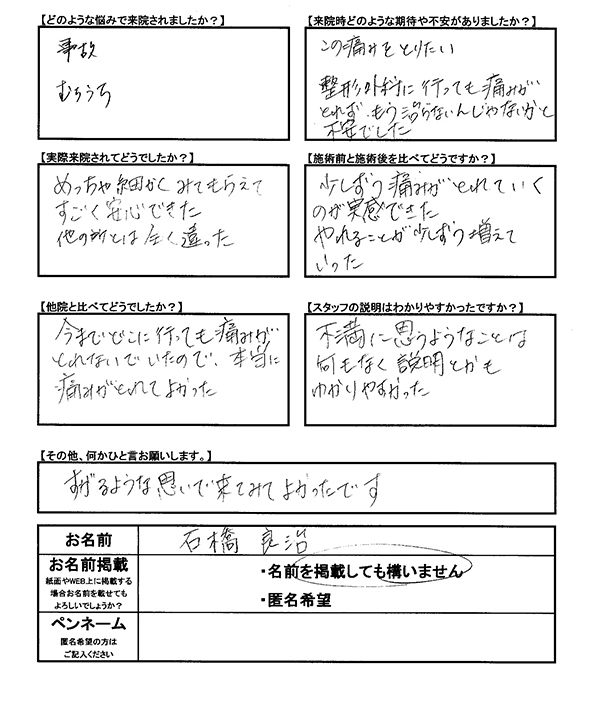 【どのような悩みで来院されましたか？】
事故
むちうち
【来院時どのような期待や不安がありましたか？】
この痛みをとりたい
整形外科に行っても痛みが
とれず、もう治らないんじゃないかと
不安でした
【実際来院されてどうでしたか？】
めっちゃ細かくみてもらえて
すごく安心できた
他の所とは全く違った
【施術前と施術後を比べてどうですか？】
少しずつ痛みがとれていく
のが実感できた
やれることが少しずつ増えて
いった
【他院と比べてどうでしたか？】
今までどこに行っても痛みが
とれないでいたので、本当に
痛みがとれてよかった
【スタッフの説明はわかりやすかったですか？】
不満に思うようなことは
何もなく説明とかも
わかりやすかった
【その他、何かひと言お願いします。】
すがるような思いで来てみてよかったです
お名前
石橋 良治
お名前掲載
紙面やWEB上に掲載する
場合お名前を載せても
よろしいでしょうか？
・名前を掲載しても構いません
・匿名希望
ペンネーム
匿名希望の方は
ご記入ください